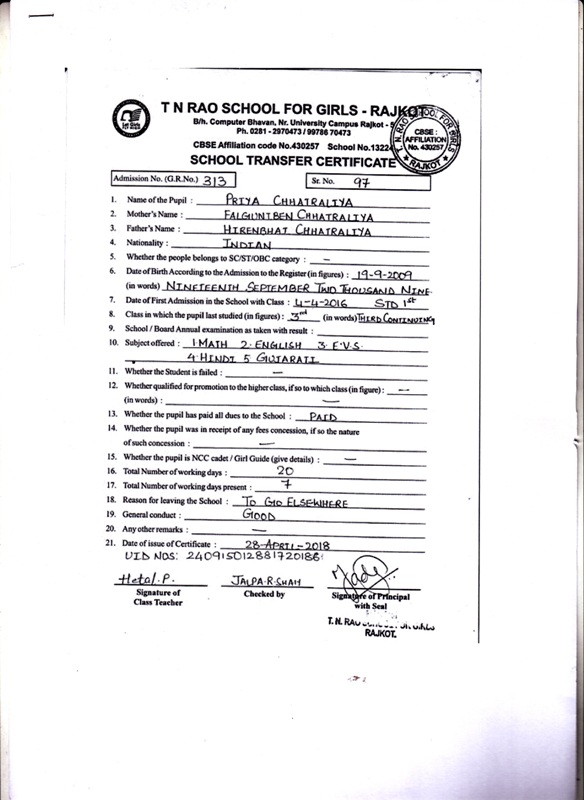 T N RAO SCHOOL FOR GIRLS - RAJKOT
B/h. Computer Bhavan, Nr. University Campus Rajkot -
Ph. 0281 - 2970473 / 99786 70473
CBSE Affiliation code No.430257 School No.1322
CBSE
AFFILIATION
No. 430257
RAJKOT
SCHOOL TRANSFER CERTIFICATE
Admission No. (G.R.No.) 313 Sr. No. 97
1. Name of the Pupil : PRIYA CHHATRALIYA
2. Mother's Name : FALGUNIBEN CHHATRALIYA
3. Father's Name : HIRENBHAI CHHATRALIYA
4. Nationality : INDIAN
5. Whether the people belongs to SC/ST/OBC category : —
6. Date of Birth According to the Admission to the Register (in figures) : 19-9-2009
(in words) NINETEENTH SEPTEMBER TWO THOUSAND NINE
7. Date of First Admission in the School with Class : 4-4-2016 STD 1st
8. Class in which the pupil last studied (in figures) : 3rd (in words) THIRD CONTINUING
9. School / Board Annual examination as taken with result :
10. Subject offered : 1 MATH 2. ENGLISH 3. E.V.S.
4. HINDI 5 GUJARATI
11. Whether the Student is failed : —
12. Whether qualified for promotion to the higher class, if so to which class (in figure) : —
(in words) : —
13. Whether the pupil has paid all dues to the School : PAID
14. Whether the pupil was in receipt of any fees concession, if so the nature
of such concession : —
15. Whether the pupil is NCC cadet / Girl Guide (give details) : —
16. Total Number of working days : 20
17. Total Number of working days present : 7
18. Reason for leaving the School : TO GO ELSEWHERE
19. General conduct : GOOD
20. Any other remarks : —
21. Date of issue of Certificate : 28-APRIL-2018
UID NOS: 240915012881720186
Hetal.P. JALPA.R.SHAH
Signature of Checked by Signature of Principal
Class Teacher with Seal
T. N. RAO GIRLS
RAJKOT.